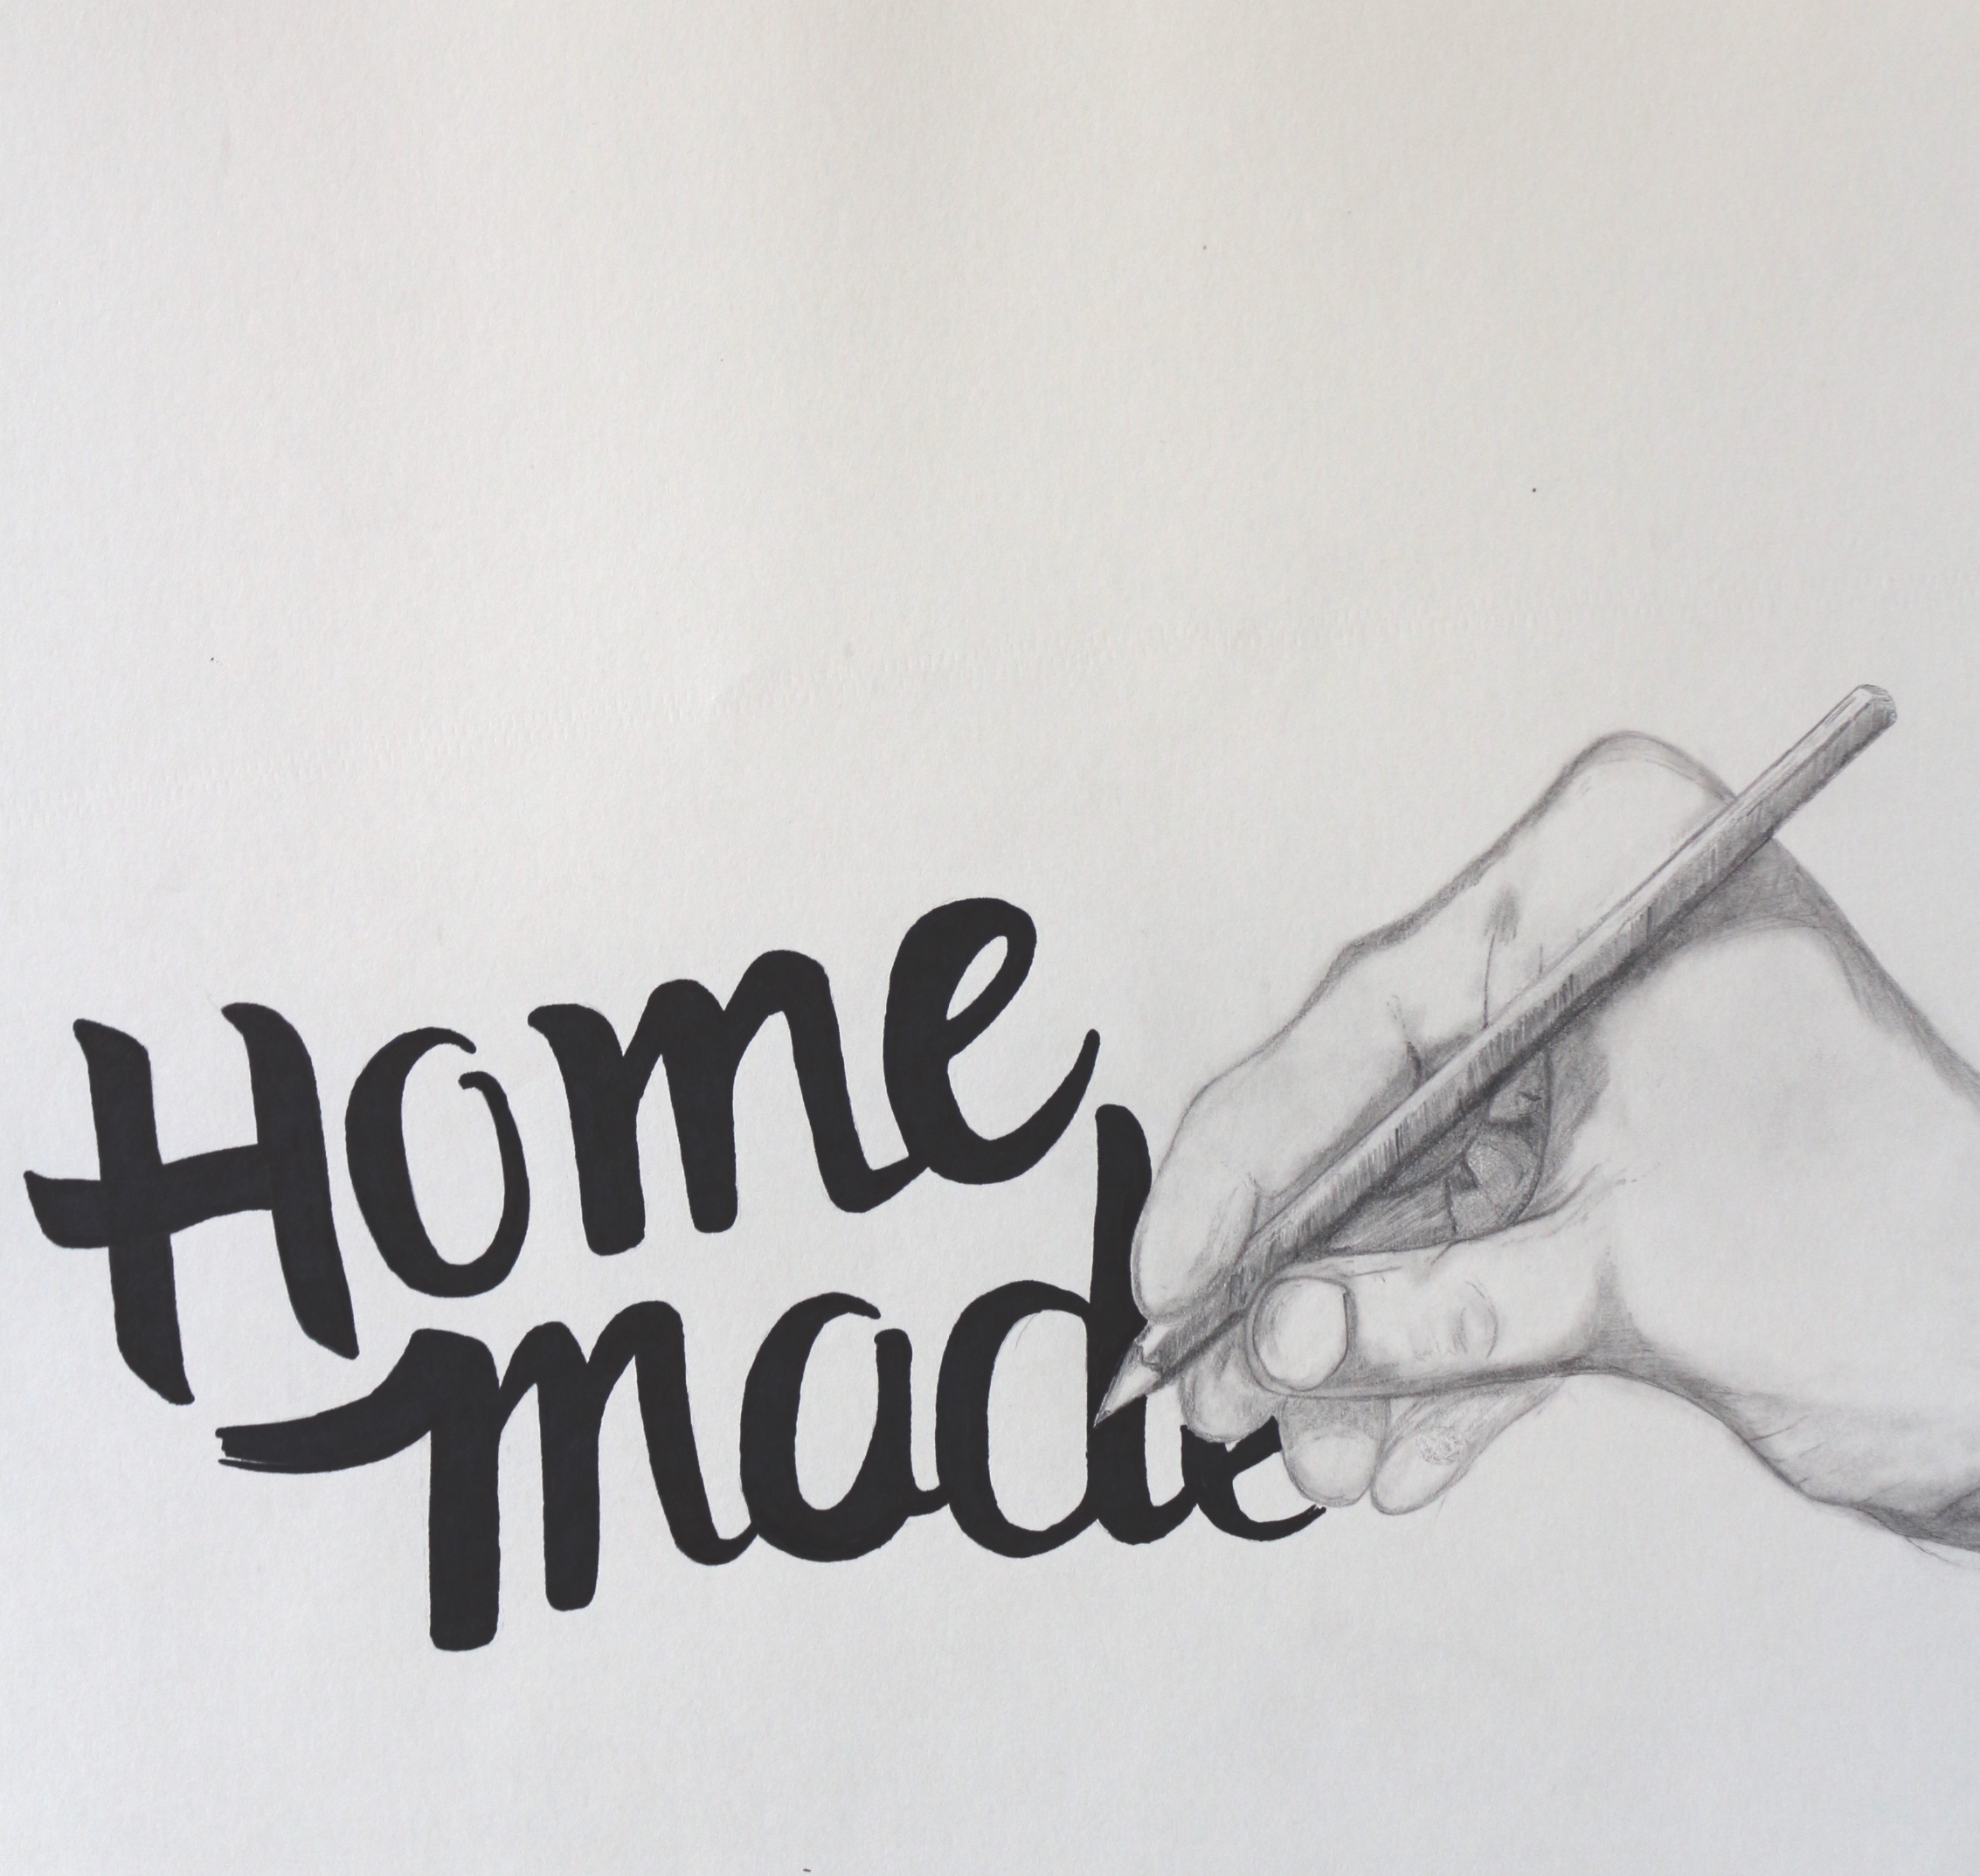 Home
made